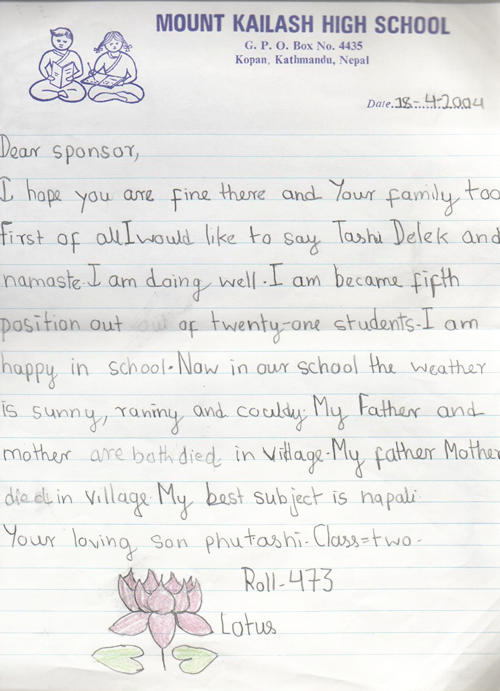 MOUNT KAILASH HIGH SCHOOL
G. P. O. Box No. 4435
Kopan, Kathmandu, Nepal
Date. 18-4-2004
Dear sponsor,
I hope you are fine there and Your family too
first of all I would like to say Tashi Delek and
namaste. I am doing well. I am became fifth
position out out of twenty-one students. I am
happy in school. Now in our school the weather
is sunny, raniny and couldy. My Father and
mother are both died in village. My father Mother
died in village. My best subject is napali
Your loving son phutashi. Class=two.
Roll-473
Lotus